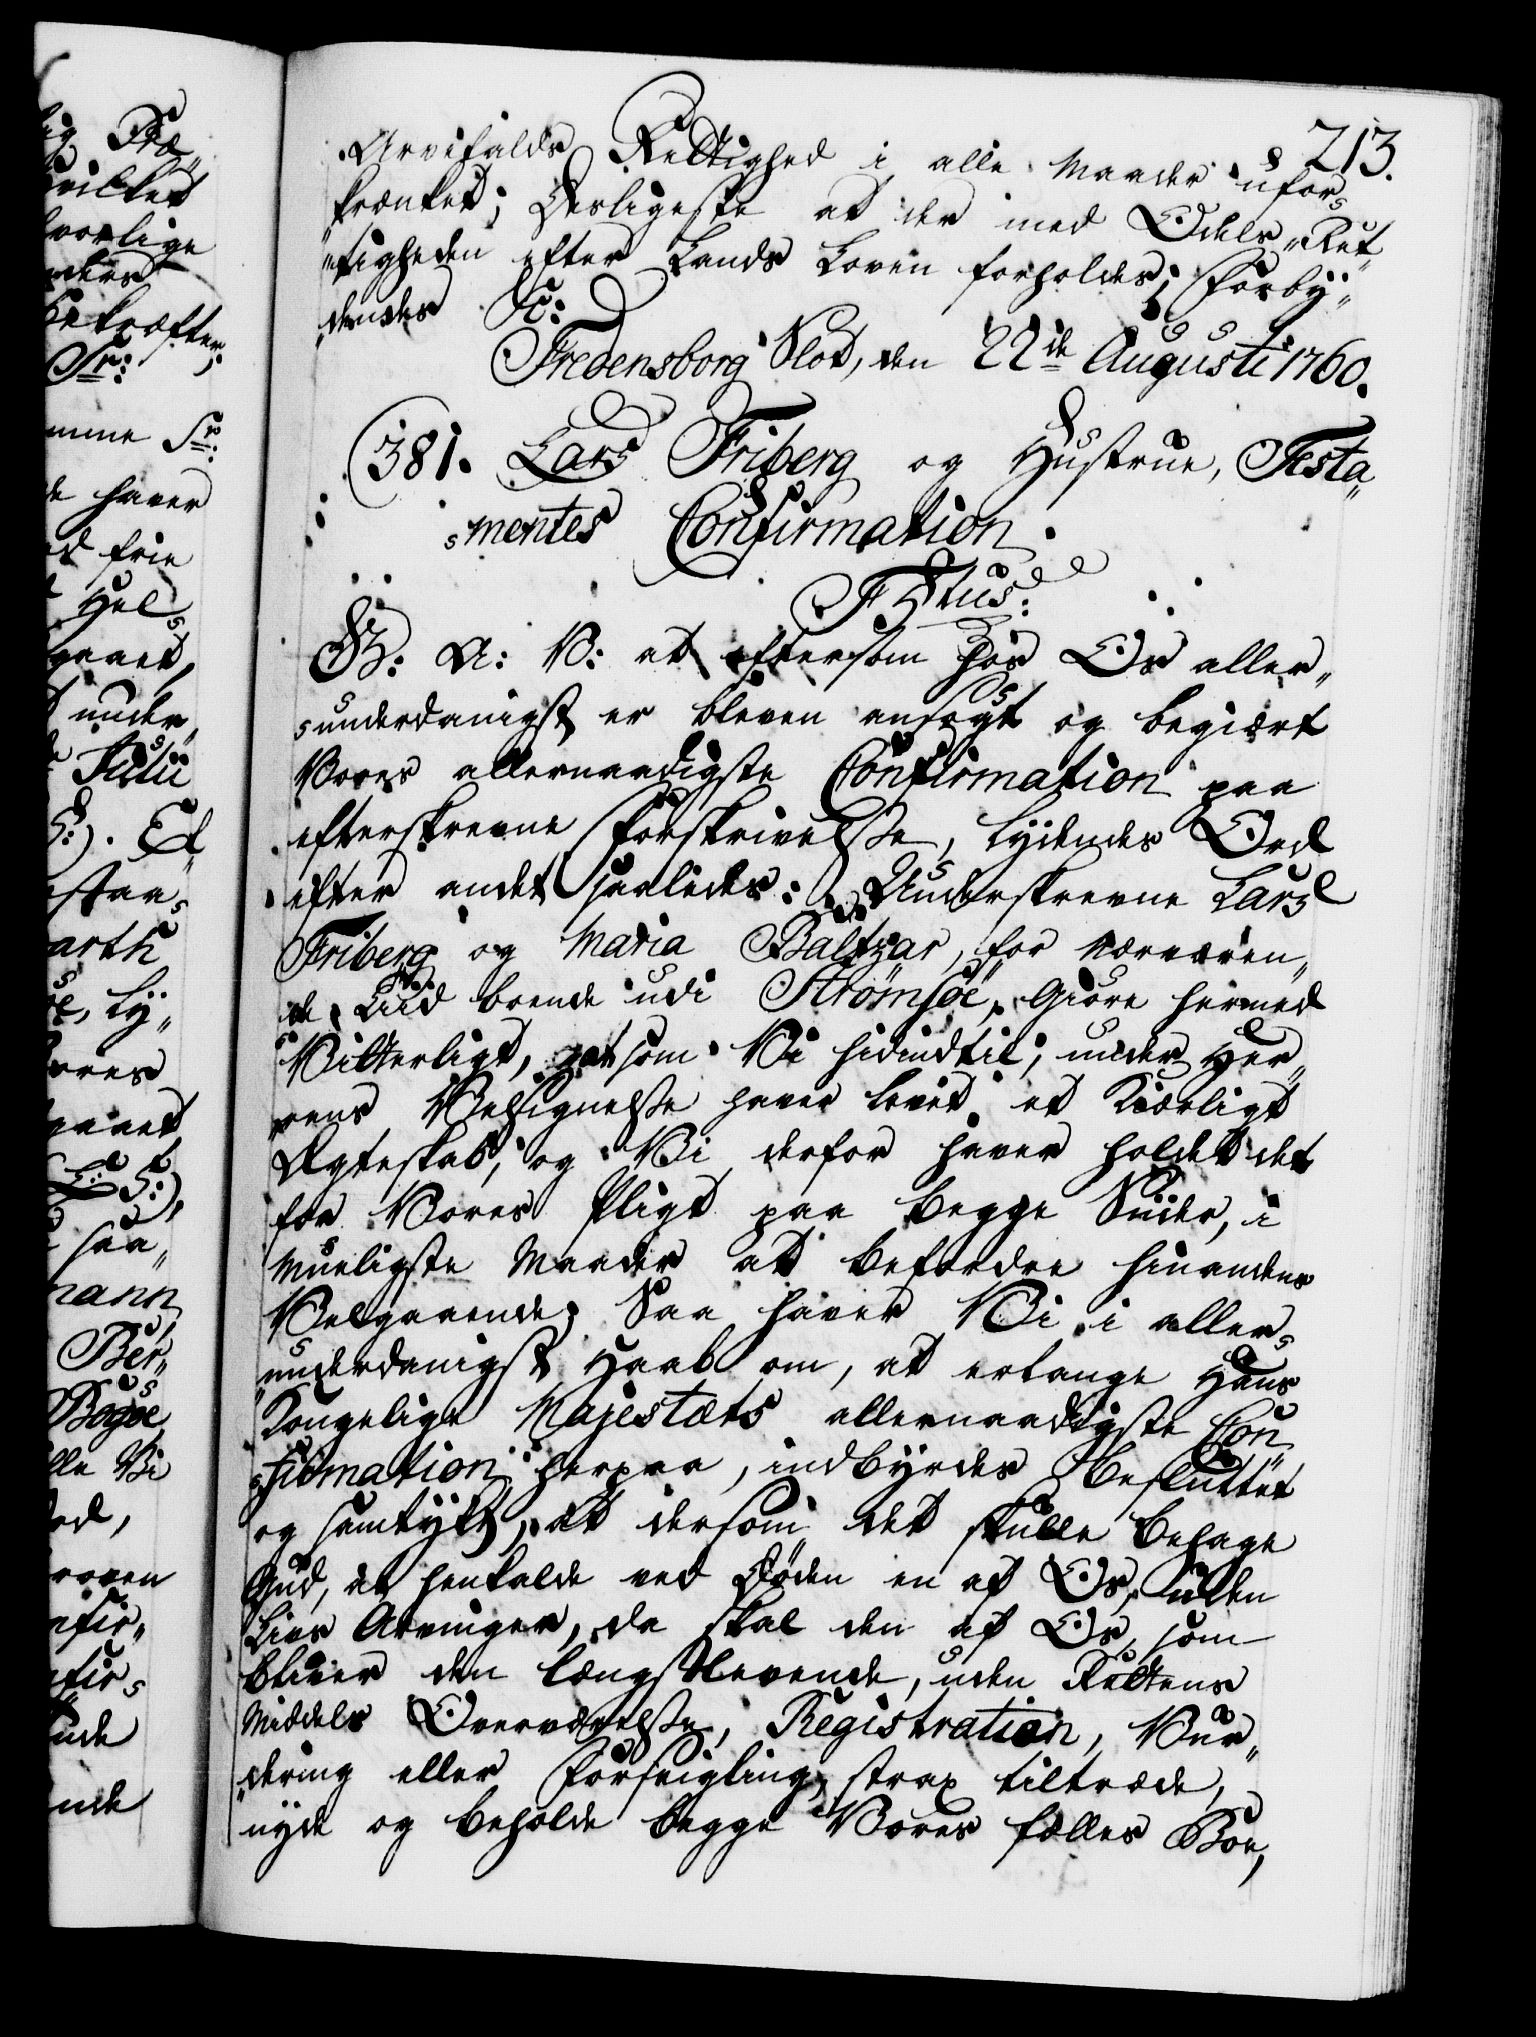 213.
Arvefalds Rettighed i alle Maader ufor-
krænket; Desligeste at der med Odels-Ret-
tigheden efter Lands Loven forholdes; Forby-
dendes &c:
Fredensborg Slot, den 22de Augusti 1760.
381. Lars Friberg og Hustrue, Testa-
mentes Confirmation.
F 5tus:
G: A: V: at eftersom hos Os aller-
underdanigst er bleven ansøgt og begiært
Vores allernaadigste Confirmation paa
efterskrevne Forskrivelse, lydendes Ord
efter andet saaledes: Underskrevne Lars
Friberg og Maria Baltzar, for nærværen-
de Tiid boende udi Strømsøe, Giøre hermed
Vitterligt, at som Vi hidindtil, under Her-
rens Velsignelse haver levet et Kierligt
Ægteskab, og Vi derfor haver holdet det
for Vores Pligt paa begge Siider, i
mueligste Maader at befordre hinandens
Velgaaende; Saa haver Vi i aller-
underdanigst Haab om, at erlange Hans
Kongelige Majestæts allernaadigste Con-
firmation herpaa, indbyrdes besluttet
og samtykt, at dersom det skulle behage
Gud, at henkalde ved Døden en af Os, uden
Livs Arvinger, da skal den af Os, som
bliver den længstlevende, uden Rettens
Middels Overværelse, Registration, Vur-
dering eller Forseigling, strax tiltræde,
nyde og beholde begge Vores fælles Boe,